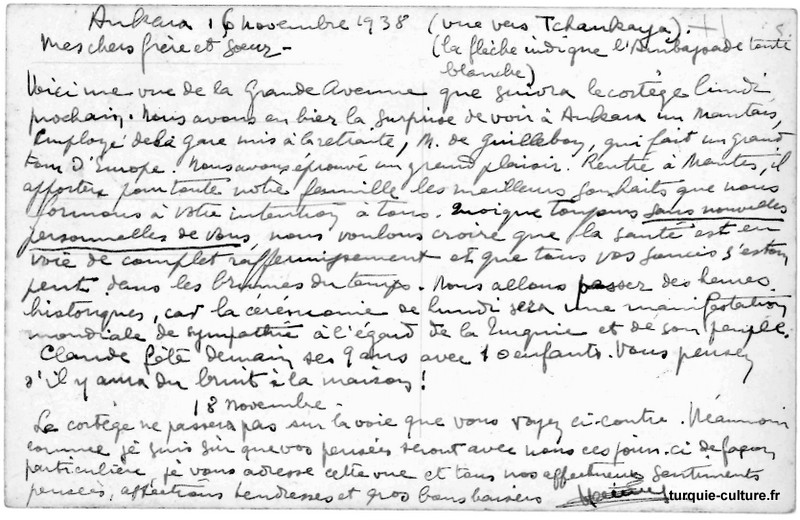 Ankara 16 novembre 1938 (vue vers Tchankaya).
Mes chers frère et soeur - (la flèche indique l'Ambassade toute
blanche)
Voici une vue de la Grande Avenue que suivra le cortège lundi
prochain. Nous avons eu hier la surprise de voir à Ankara un Nantais,
employé de la gare mis à la retraite, M. de Guilleboy, qui fait un grand
tour d'Europe. Nous avons éprouvé un grand plaisir. Rentré à Nantes, il
apportera pour toute notre famille les meilleurs souhaits que nous
formons à votre intention à tous. Quoique toujours sans nouvelles
personnelles de vous, nous voulons croire que la santé est en
voie de complet raffermissement et que tous vos soucis s'estom
pent dans les brumes du temps. Nous allons passer des heures
historiques, car la cérémonie de lundi sera une manifestation
mondiale de sympathie à l'égard de la Turquie et de son peuple.
Claude fête demain ses 9 ans avec 10 enfants. Vous pensez
s'il y aura du bruit à la maison!
18 novembre -
Le cortège ne passera pas sur la voie que vous voyez ci-contre. Néanmoins
comme je suis sûr que vos pensées seront avec nous ces jours-ci de façon
particulière je vous adresse cette vue et tous nos affectueux sentiments
pensées, affections tendresses et gros bons baisers
turquie-culture.fr